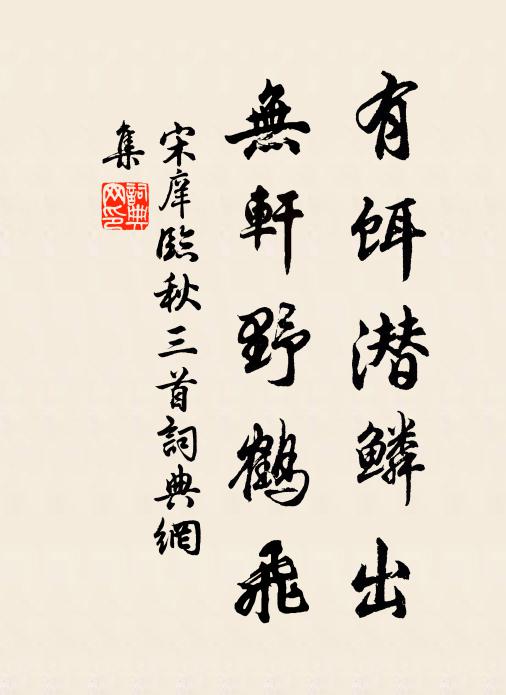 有餌潜鳞出
無軒野鶴飛
宋庠臨秋三首詞典網
集
詞典
网印